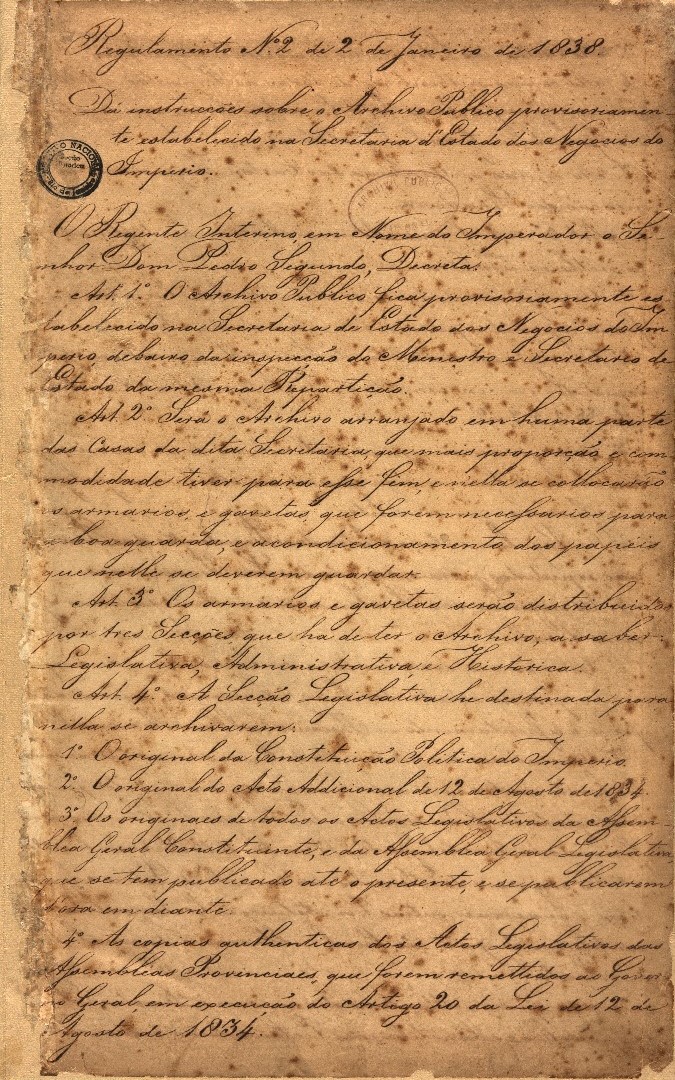 Regulamento N.º 2 de 2 de Janeiro de 1838.
Dá instrucções sobre o Archivo Publico provisoriamen-
te estabelecido na Secretaria d'Estado dos Negocios do
Imperio.
ARCHIVO NACIONAL
O Regente Interino, em Nome do Imperador o Se-
nhor Dom Pedro Segundo, Decreta.
Art. 1º O Archivo Publico fica provisoriamente es
tabelecido na Secretaria de Estado dos Negocios do Im
perio debaixo da inspecção do Ministro e Secretario de
Estado da mesma Repartição.
Art. 2º Será o Archivo arranjado em huma parte
das Casas da dita Secretaria, que mais proporção, e com
modidade tiver para esse fim, e nella se collocarão
os armarios, e gavetas, que forem necessarios para
a boa guarda, e acondicionamento dos papeis
que nelle se deverem guardar.
Art. 3º Os armarios e gavetas serão distribuidos
por tres Secções, que ha de ter o Archivo, a saber:
Legislativa, Administrativa, e Historica.
Art. 4º A Secção Legislativa he destinada para
nella se archivarem:
1º O original da Constituição Politica do Imperio.
2º O original do Acto Addicional de 12 de Agosto de 1834.
3º Os originaes de todos os Actos Legislativos da Assem-
blea Geral Constituinte, e da Assemblea Geral Legislativa
que se tem publicado até o presente, e se publicarem
d'ora em diante.
4º As copias authenticas dos Actos Legislativos das
Assembleas Provinciaes, que forem remettidos ao Gover
no Geral, em execução do Artigo 20 da Lei de 12 de
Agosto de 1834.